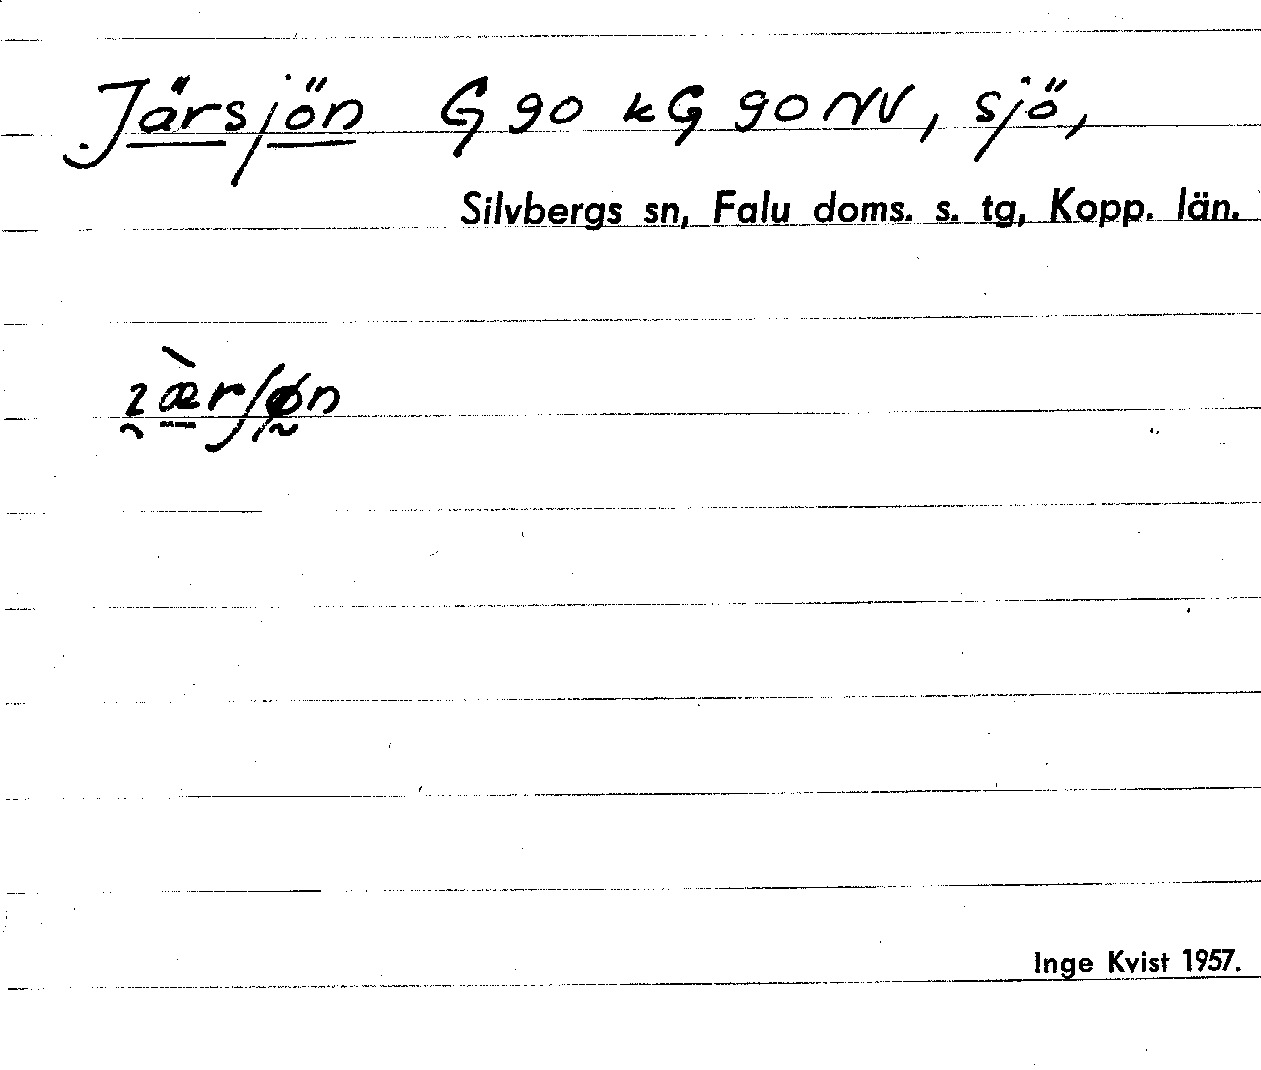 Järsjön G 90 kG 90 NV, sjö,
Silvbergs sn, Falu doms. s. tg, Kopp. län.
Inge Kvist 1957.